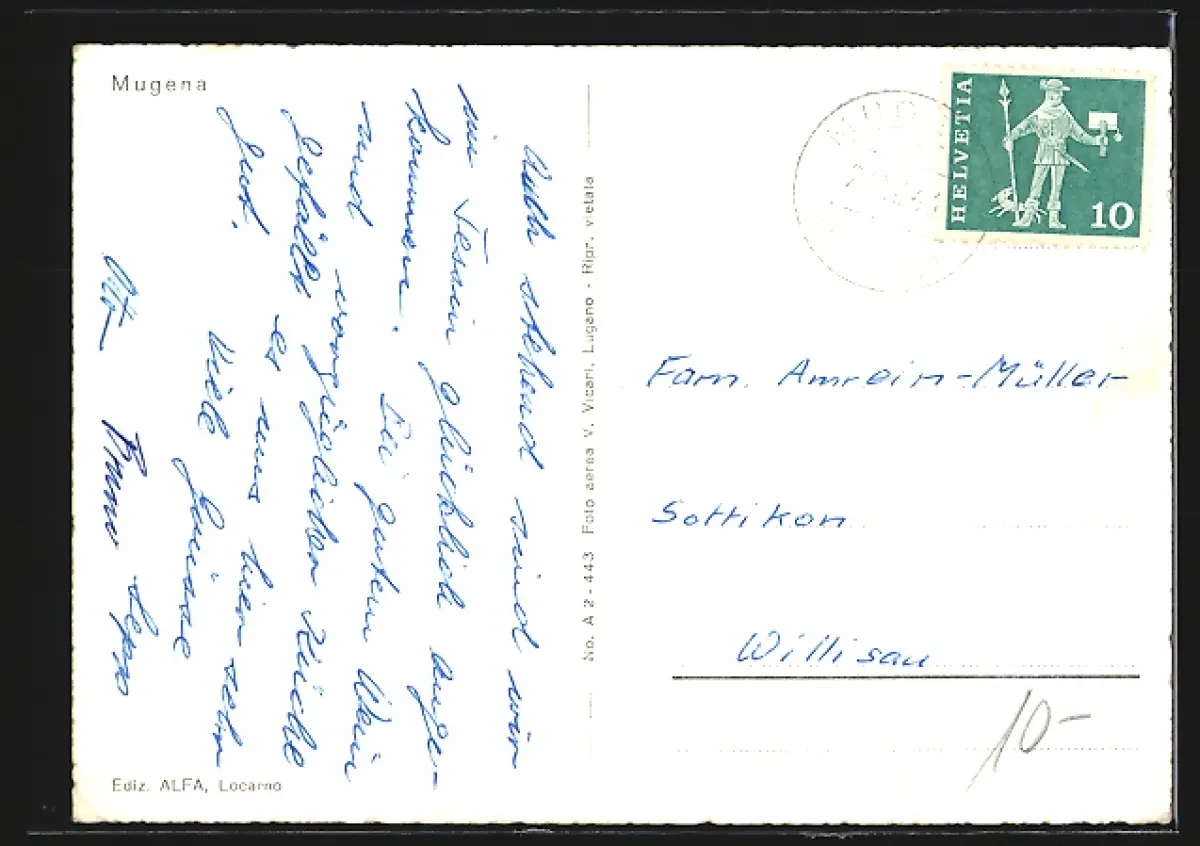 Mugena
Wohl stehend sind wir
im Tessin glücklich ange-
kommen. Bei gutem Wein
und vorzüglicher Küche
gefällt es uns hier sehr
gut.
Viele Grüsse
Otto
No. A 2 - 443 Foto aerea V. Vicari, Lugano - Ripr. vietata
Ediz. ALFA, Locarno
HELVETIA
10
Fam. Amrein-Müller
Sottikon
Willisau
10-